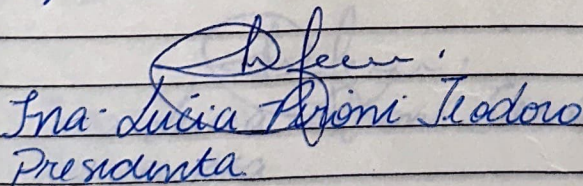 Ana Lucia Perioni Teodoro
Presidenta